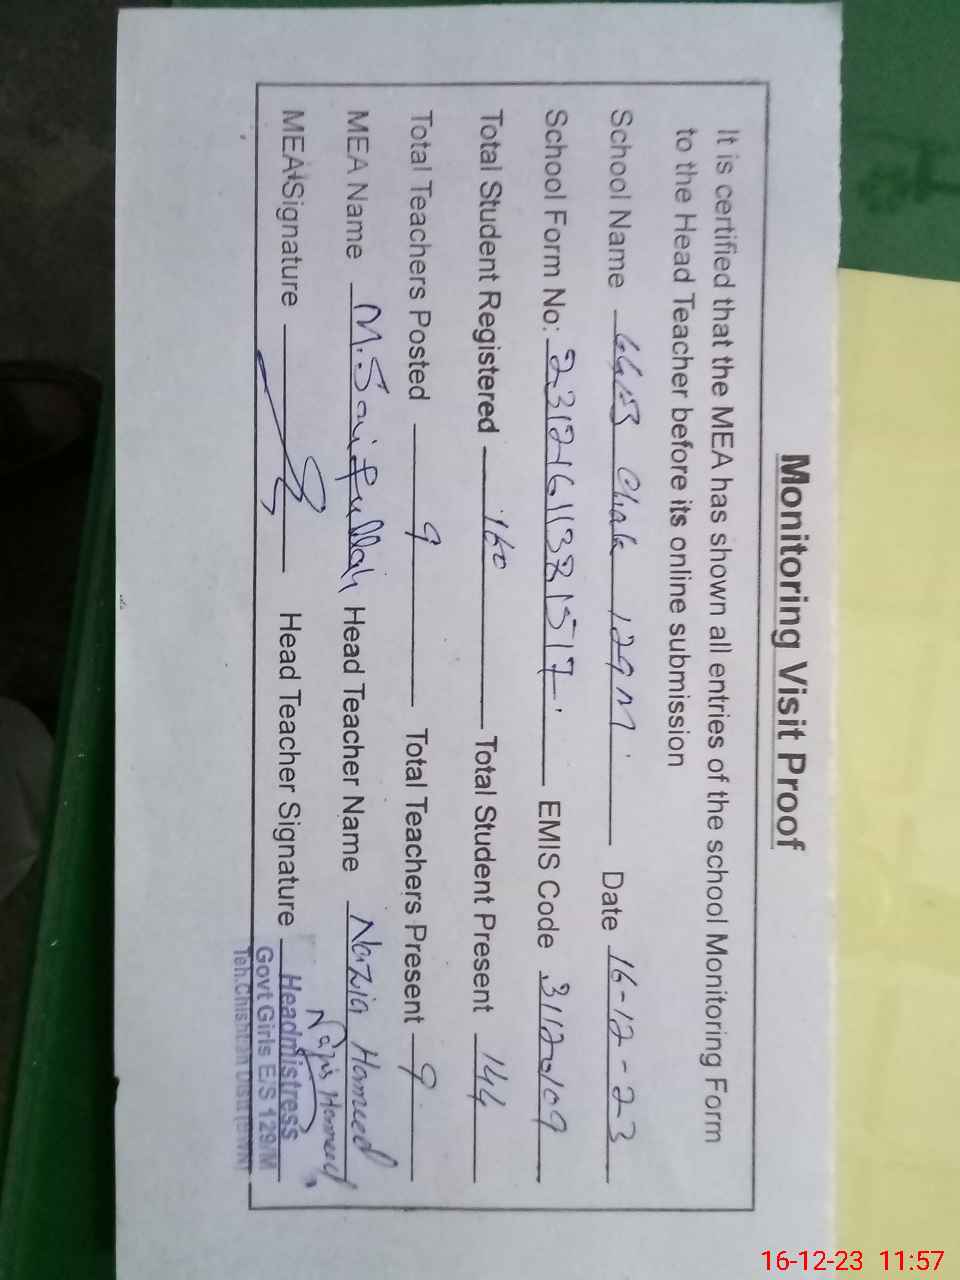 Monitoring Visit Proof
It is certified that the MEA has shown all entries of the school Monitoring Form
to the Head Teacher before its online submission
School Name Chak 129 M Date 16-12-23
School Form No: EMIS Code 31120109
Total Student Registered 160 Total Student Present 144
Total Teachers Posted 9 Total Teachers Present 9
MEA Name M. Saifullah Head Teacher Name Nazia Hameed
MEA Signature Head Teacher Signature
Headmistress
Govt Girls E/S 129/M
Teh. Chishtian Distt (BWN)
16-12-23 11:57